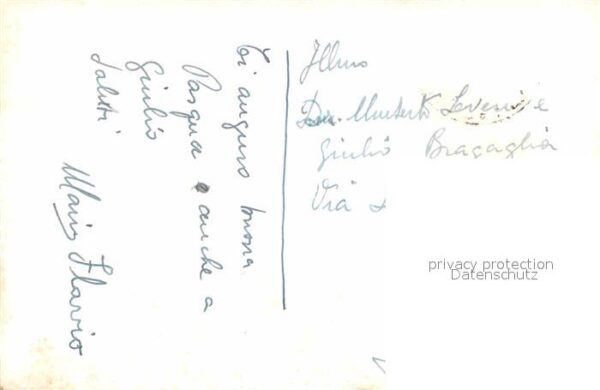 Ti auguro buona
Pasqua e anche a
Giulio
Saluti
Mario Flavio
Illmo
Dr. Umberto e
Giulio Bragaglia
Via
privacy protection
Datenschutz